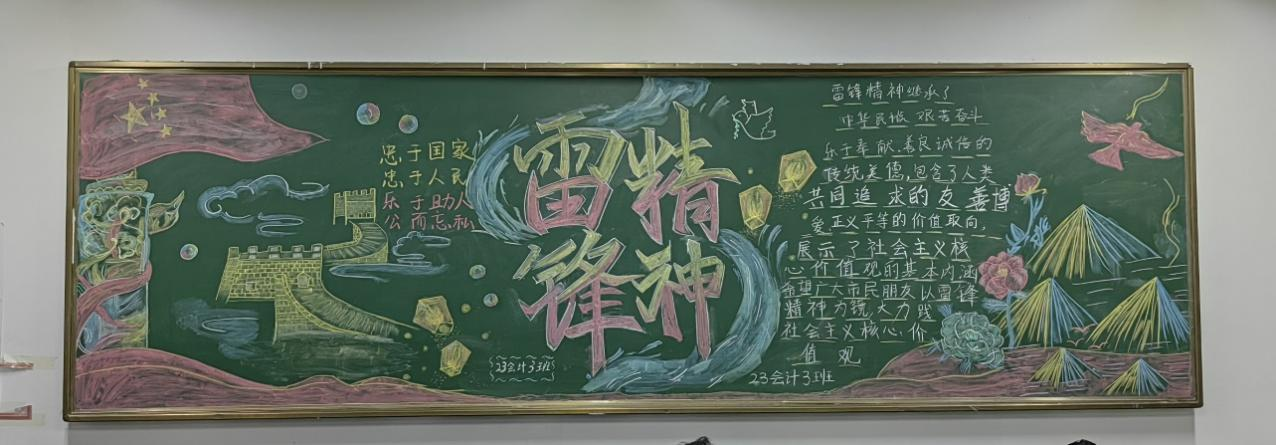 忠于国家
忠于人民
乐于助人
公而忘私
雷锋
精神
23会计3班
雷锋精神继承了
中华民族 艰苦奋斗
乐于奉献、善良诚信的
传统美德,包含了人类
共同追求的友善博
爱正义平等的价值取向,
展示了社会主义核
心价值观的基本内涵
希望广大市民朋友以雷锋
精神为镜大力践
社会主义核心价
值观
23会计3班